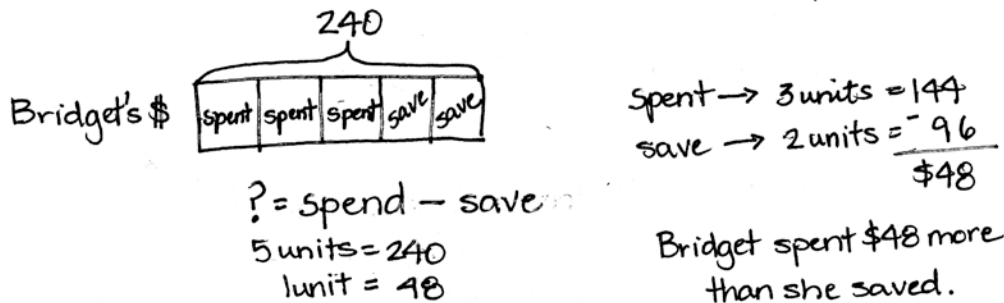 240
Bridget's $ spent spent spent save save
? = spend - save
5 units = 240
1 unit = 48
spent → 3 units = 144
save → 2 units = - 96
$48
Bridget spent $48 more
than she saved.